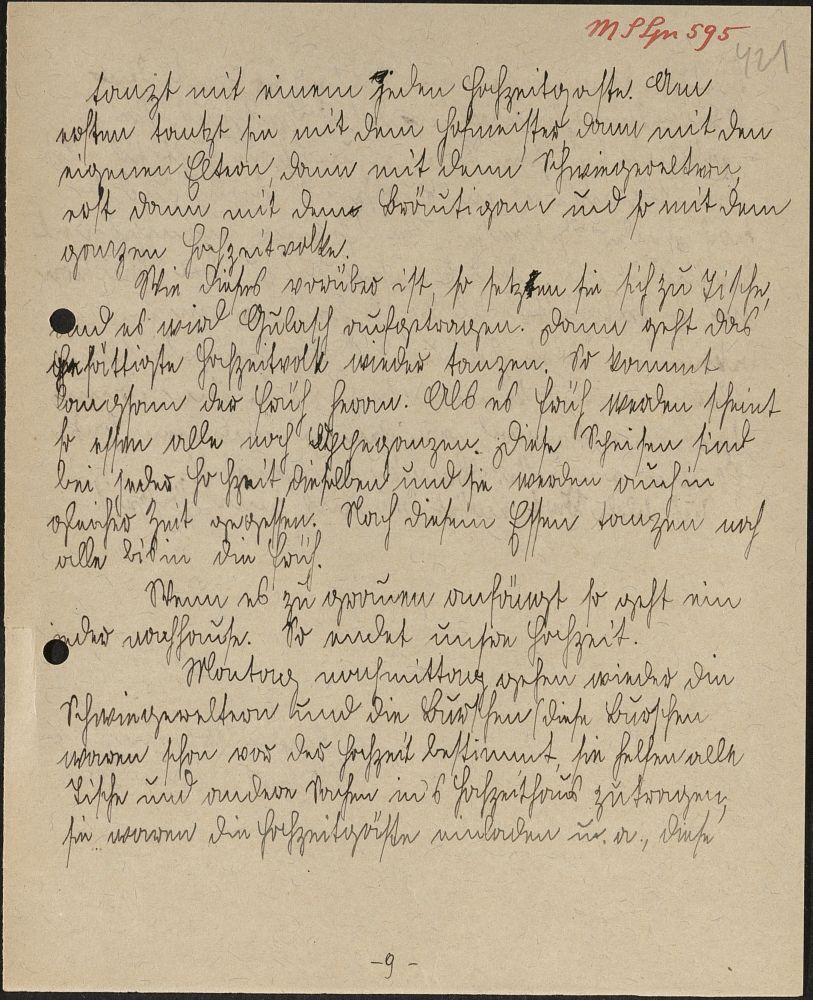 MSgn 595
421
tanzt mit einem jeden Hochzeitgaste. Am
ersten tantzt sie mit dem Hofmeister, dann mit den
eigenen Eltern, dann mit denn Schwiegereltern,
erst dann mit dem Bräutigam und so mit dem
ganzen Hochzeitvolke.
Wie dieses vorüber ist, so setzten sie sich zu Tische,
und es wird Gulasch aufgetragen. Dann geht das
gesättigte Hochzeitvolk wieder tanzen. So kommt
langsam der Früh heran. Als es Früh werden scheint
so essen alle noch. Diese Speisen sind
bei jeder Hochzeit dieselben und sie werden auch in
gleicher Zeit gegessen. Nach diesem Essen tanzen noch
alle bis in die Früh.
Wenn es zu grauen anfängt so geht ein
jeder nachhause. So endet unsre Hochzeit.
Montag nachmittag gehen wieder die
Schwiegereltern und die Burschen (diese Burschen
waren schon vor der Hochzeit bestimmt, sie helfen alle
Tische und andere Sachen ins Hochzeithaus zutragen,
sie waren die Hochzeitgäste einladen u. a., diese
-9-